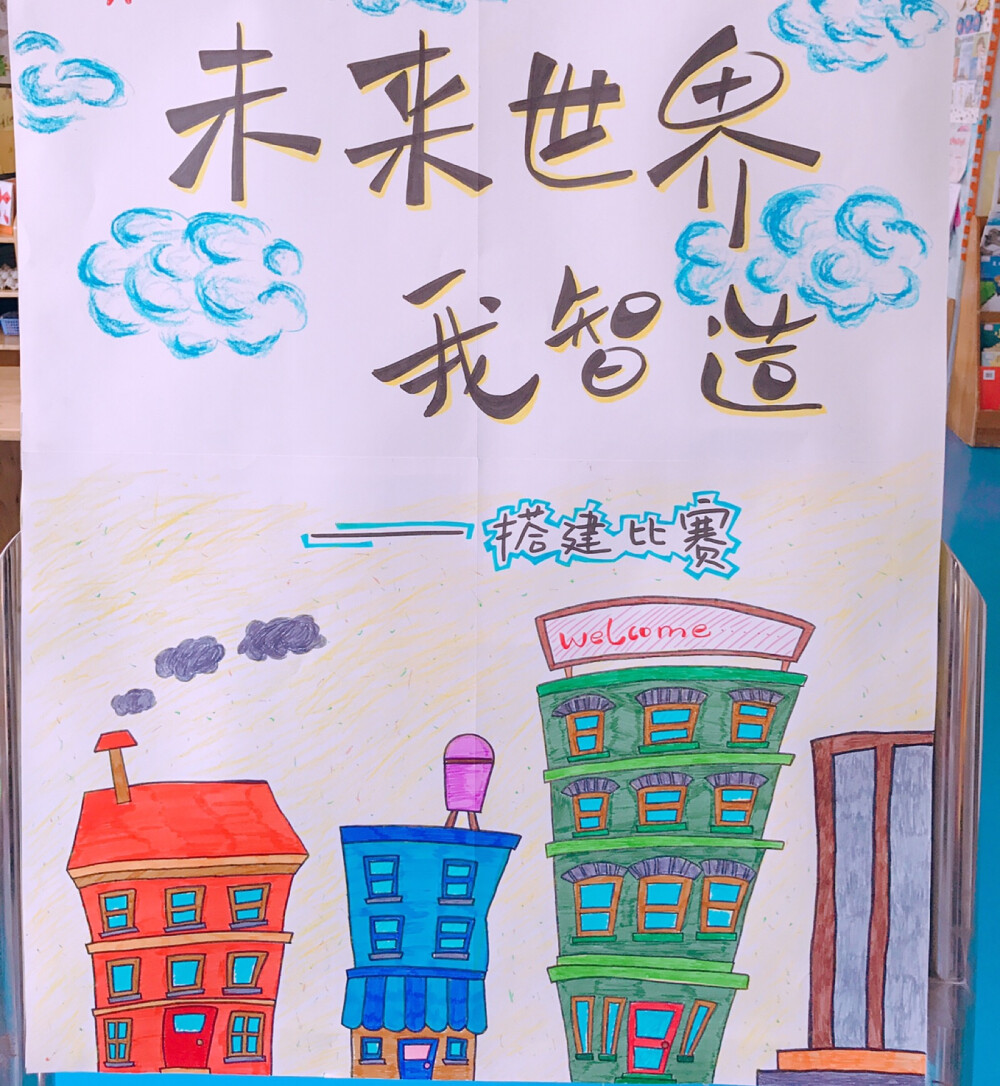 未来世界
我智造
——搭建比赛
welcome